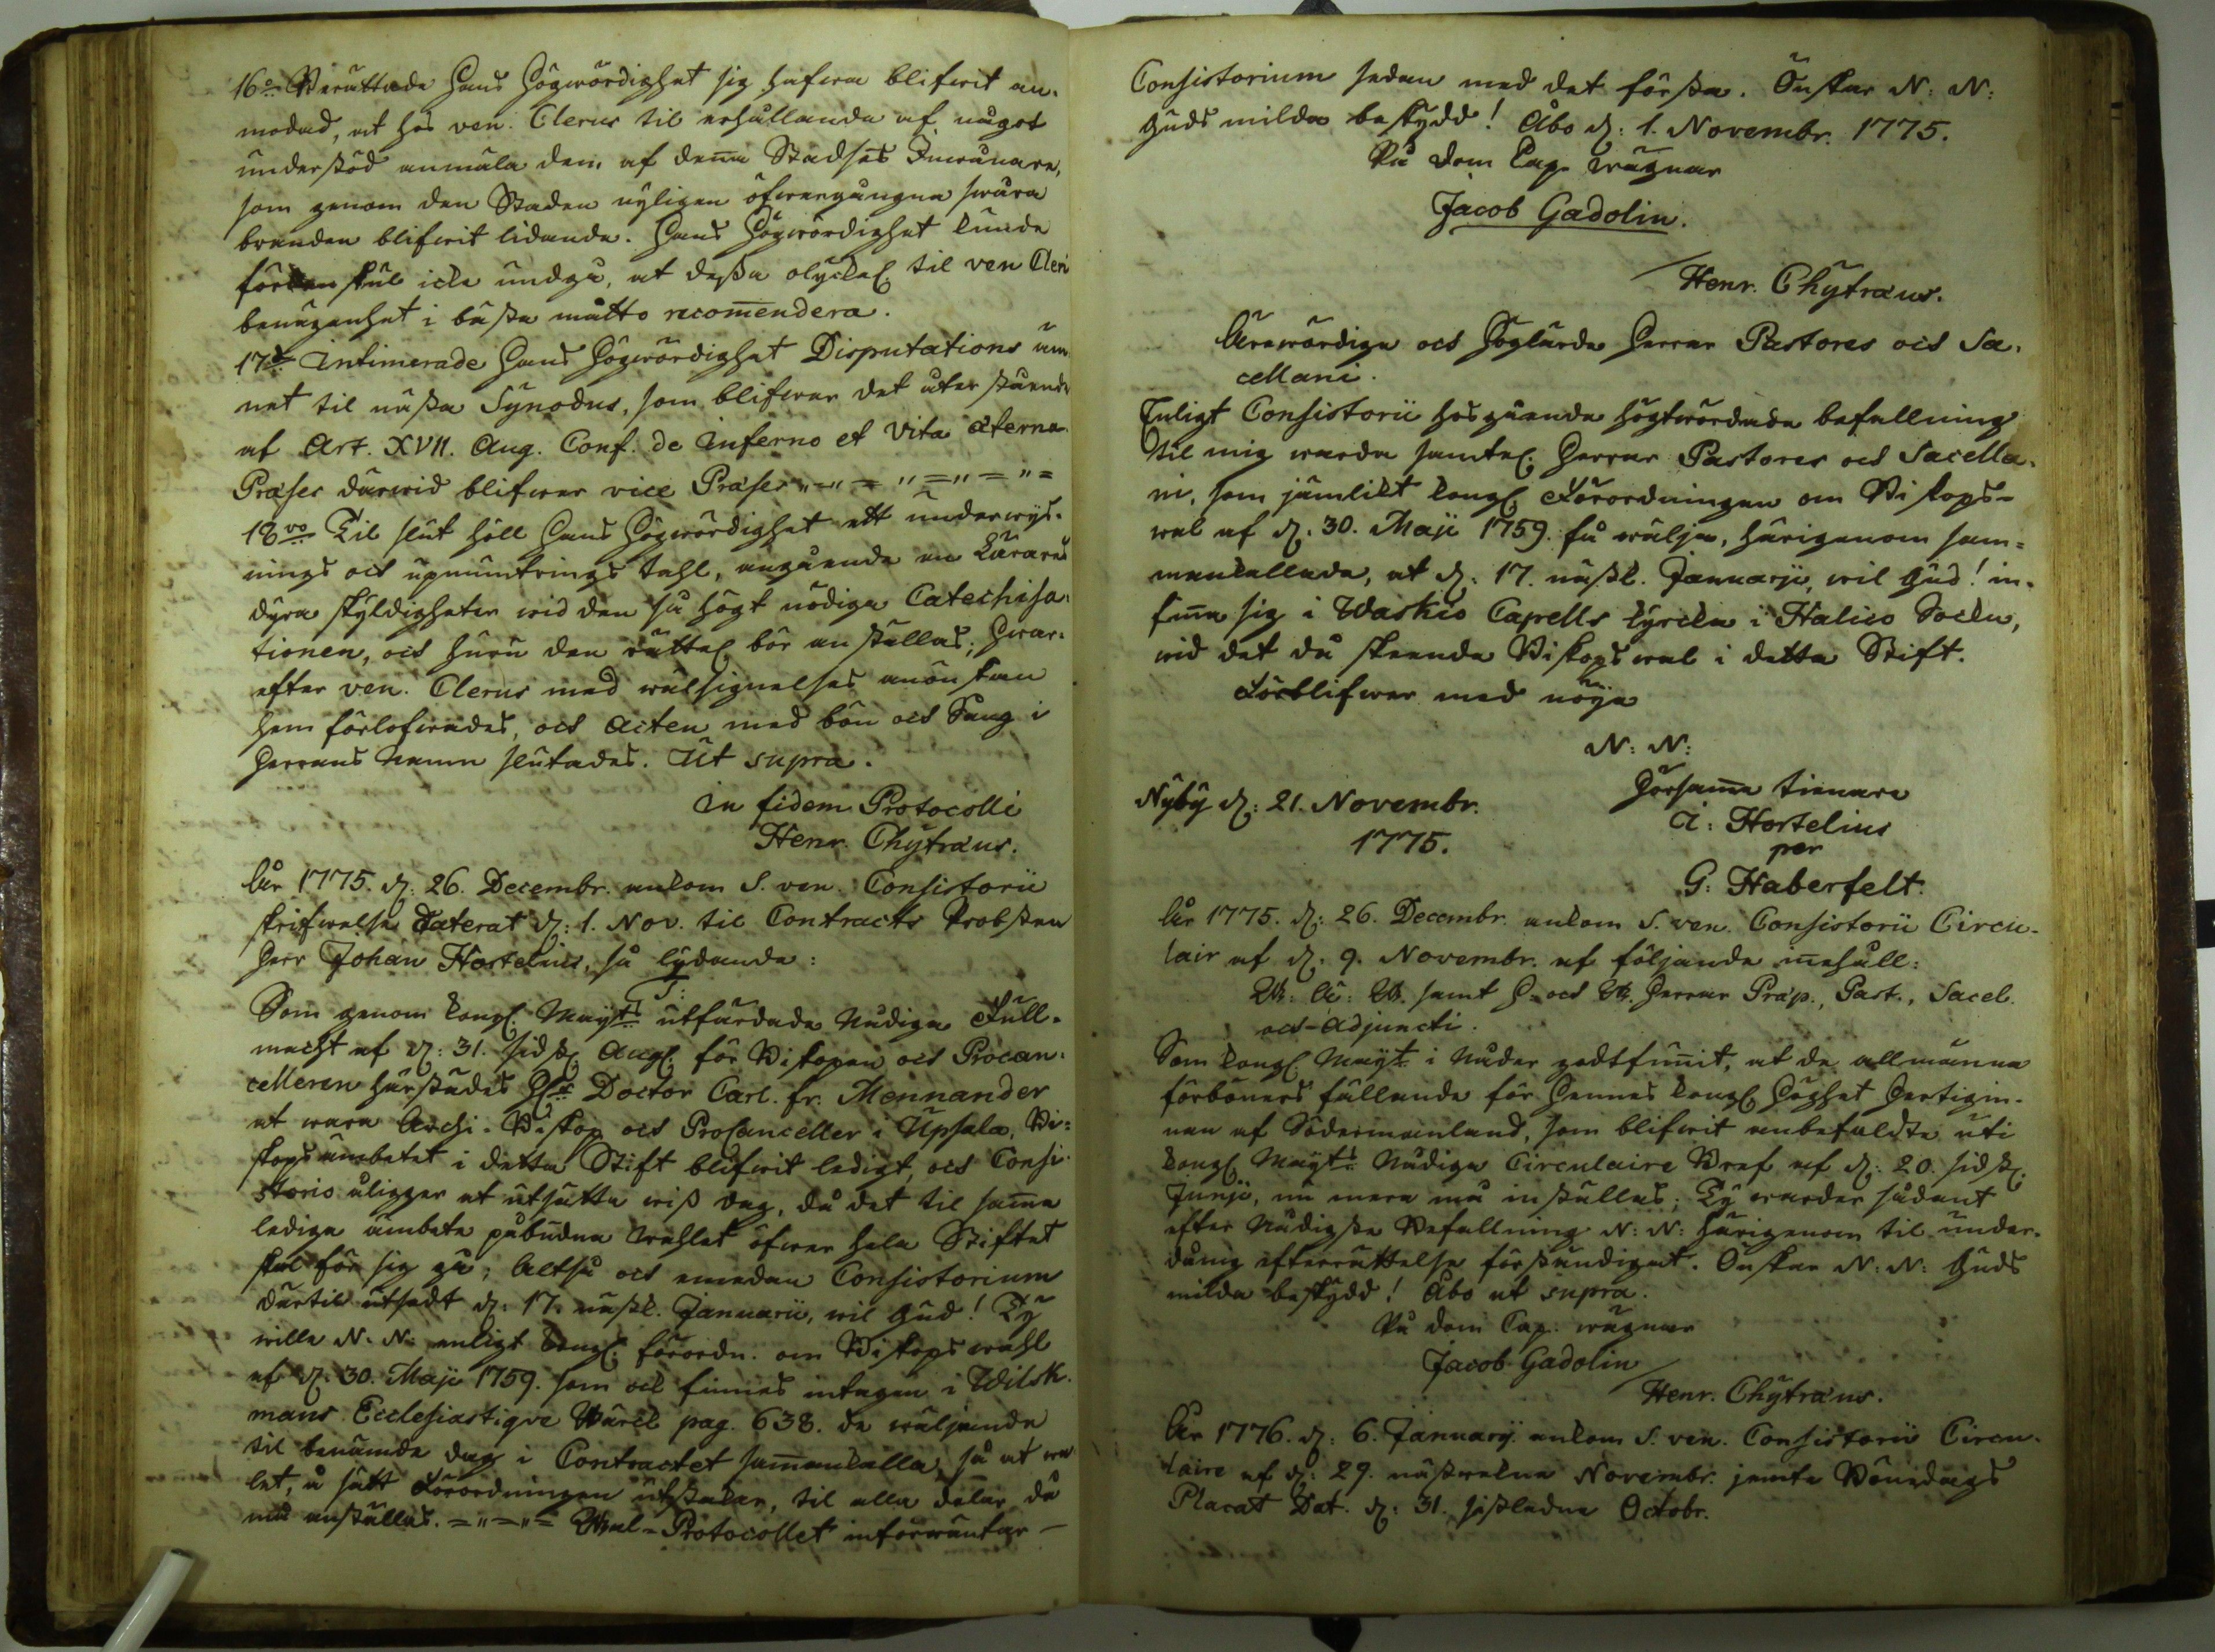 16:o Berättade Hans Högwördighet sig hafwa blifwit an-
modad, at hos ven. Clerus til erhållande af något
understöd anmäla den, af denna Stadsens Inwånare,
som genom den Staden nyligen öfwergångna swåra
branden blifwit lidande. Hans Högwördighet kunde
förden skul icke undgå, at dessa olyckel. til ven Cleri
benägenhet i bästa måtto recommendera.
17:o Intimerade Hans Högwördighet Disputations äm
net til nästa Synodus, som blifwer det återstående
af Art. XVII. Aug. Conf. de Inferno et Vita æterna.
Præses därwid blifwer vice Præses „ = „ = „ = „ = „ =
18:vo Til slut höll Hans Högwördighet ett underwys-
nings och upmuntrings tahl, angående en Lärares
dyra skyldigheter wid den så högt nödiga Catechisa-
tionen, och huru den rättel. bör anställas; Hwar-
efter ven. Clerus med wälsignelses anönskan
hem förlofwades, och Acten med bön och Sång i
Herrans Namn slutades. Ut supra.
In fidem Protocolli
Henr. Chytræus.
År 1775. d: 26. Decembr. ankom S. ven. Consistorii
skrifwelse Daterat d: 1. Nov. til Contracts Probsten
Herr Johan Hortelius, så lydande:
S. T:
Som genom Kongl. Mayts utfärdade Nådiga Full-
macht af d: 31. sidstl. Aug. för Biskopen och Procan-
celleren härstädes H:r Doctor Carl. Fr. Mennander
at wara Archi-Biskop och Procanceller i Upsala, Bi-
skops ämbetet i detta Stift blifwit ledigt, och Consi-
storio åligger at utsätta wiss dag, då det til samma
lediga ämbete påbudna Wahlet öfwer hela Stiftet
skal för sig gå; Altså och emedan Consistorium
därtil utsedt d: 17. nästk. Januarii, wil Gud! Ty
wille N. N: enligt Kongl. förordn. om Biskops wahl
af d: 30. Maji 1759. som ock finnes intagen i Wilsk-
mans Ecclesiastique Wärck pag. 638. de wäljande
til benämde dag i Contractet sammankalla, så at wa
let, å sätt Förordningen utstakar, til alla delar då
må anställas. = „ = „ = Wal-Protocollet inforwäntar —
Consistorium sedan med det första. Önskar N: N:
Guds milda beskydd! Åbo d: 1. Novembr. 1775.
På Dom Cap. wägnar
Jacob Gadolin.
Henr. Chytræus.
Ärewördige och Höglärde Herrar Pastores och Sa-
cellani.
Enligt Consistorii hosgående högtwördade befallning
til mig warda samtel. Herrar Pastores och Sacella-
ni, som jämlikt Kongl. Förordningen om Biskops-
wal af d: 30. Maji 1759. få wälja, härigenom sam-
mankallade, at d: 17. nästk. Januarji, wil Gud! in-
finna sig i Waskio Capells kyrcka i Halico Sockn,
wid det då skeende Biskops wal i detta Stift.
Förblifwer med nöje
N: N:
Hörsamme tienare
Nyby d: 21. Novembr.
1775.
A: Hortelius
per
G: Haberfelt.
År 1775. d: 26. Decembr. ankom S. ven. Consistorii Circu-
lair af d: 9. Novembr. af följande innehåll:
W: Ä: W. samt H= och W. Herrar Præp., Past., Sacel.
och Adjuncti.
Som Kongl. Mayt i Nåder godtfunnit, at de allmänna
förböners fällande för Hennes Kongl. Höghet Hertigin-
nan af Södermanland, som blifwit anbefaldte uti
Kongl. Mayts Nådiga Circulaire Bref af d: 20. sidstl.
Junji, nu mera må inställas; Ty warder sådant
efter Nådigste Befallning N: N: härigenom til under-
dånig efterrättelse förständigat. Önskar N: N: Guds
milda beskydd! Åbo ut supra.
På Dom Cap. wägnar
Jacob Gadolin
Henr. Chytræus.
År 1776. d: 6. Januarij. ankom S. ven. Consistorii Circu-
laire af d: 29. nästwekne Novembr. jemte Bönedags
Placat Dat. d: 31. sistledne Octobr.